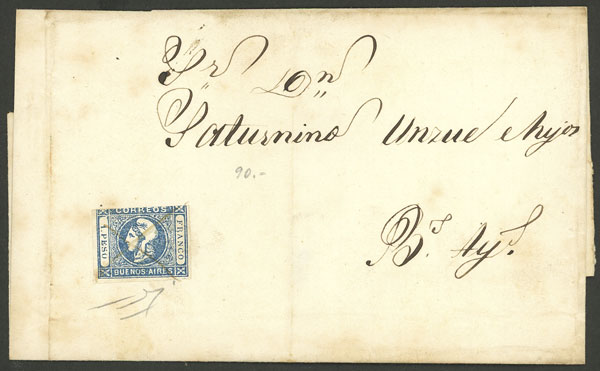 Sr Dn
Saturnino Unzue e hijos
90.-
CORREOS
1 PESO
FRANCO
BUENOS AIRES
Bs. Ays.